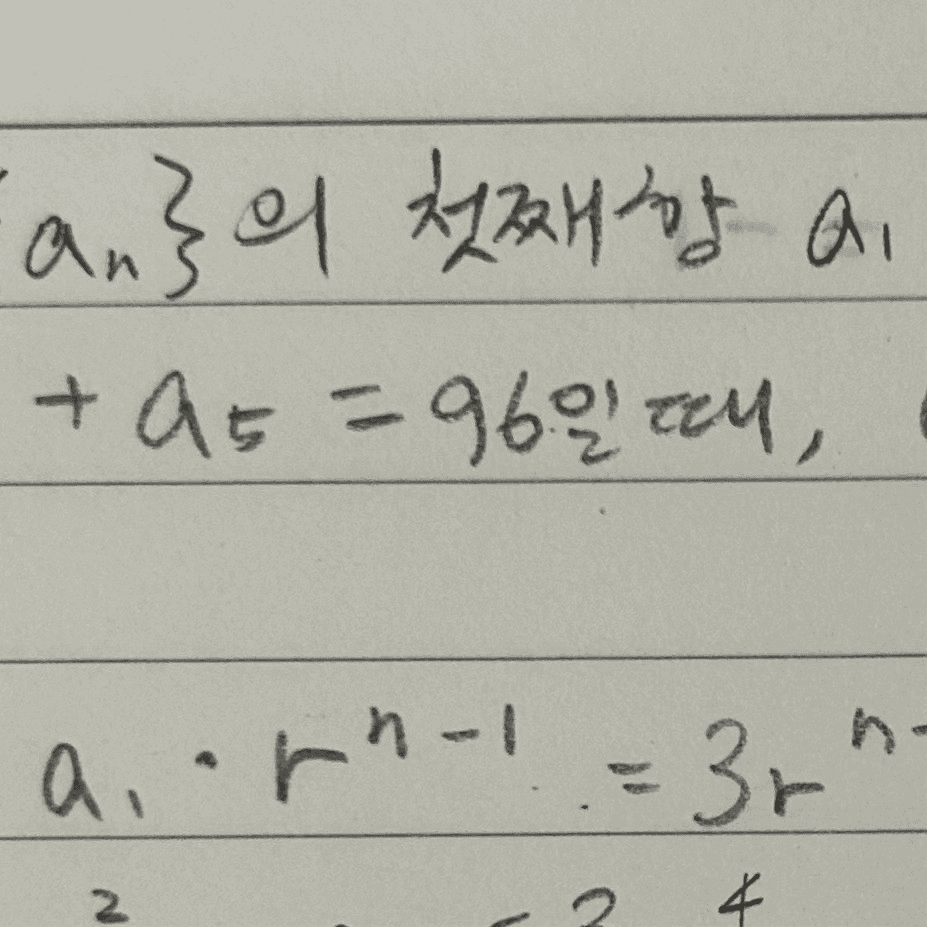 a_n}의 첫째항 a_1
+ a_5 = 96일 때,
a_1 · r^{n-1} = 3r^{n-
2 4